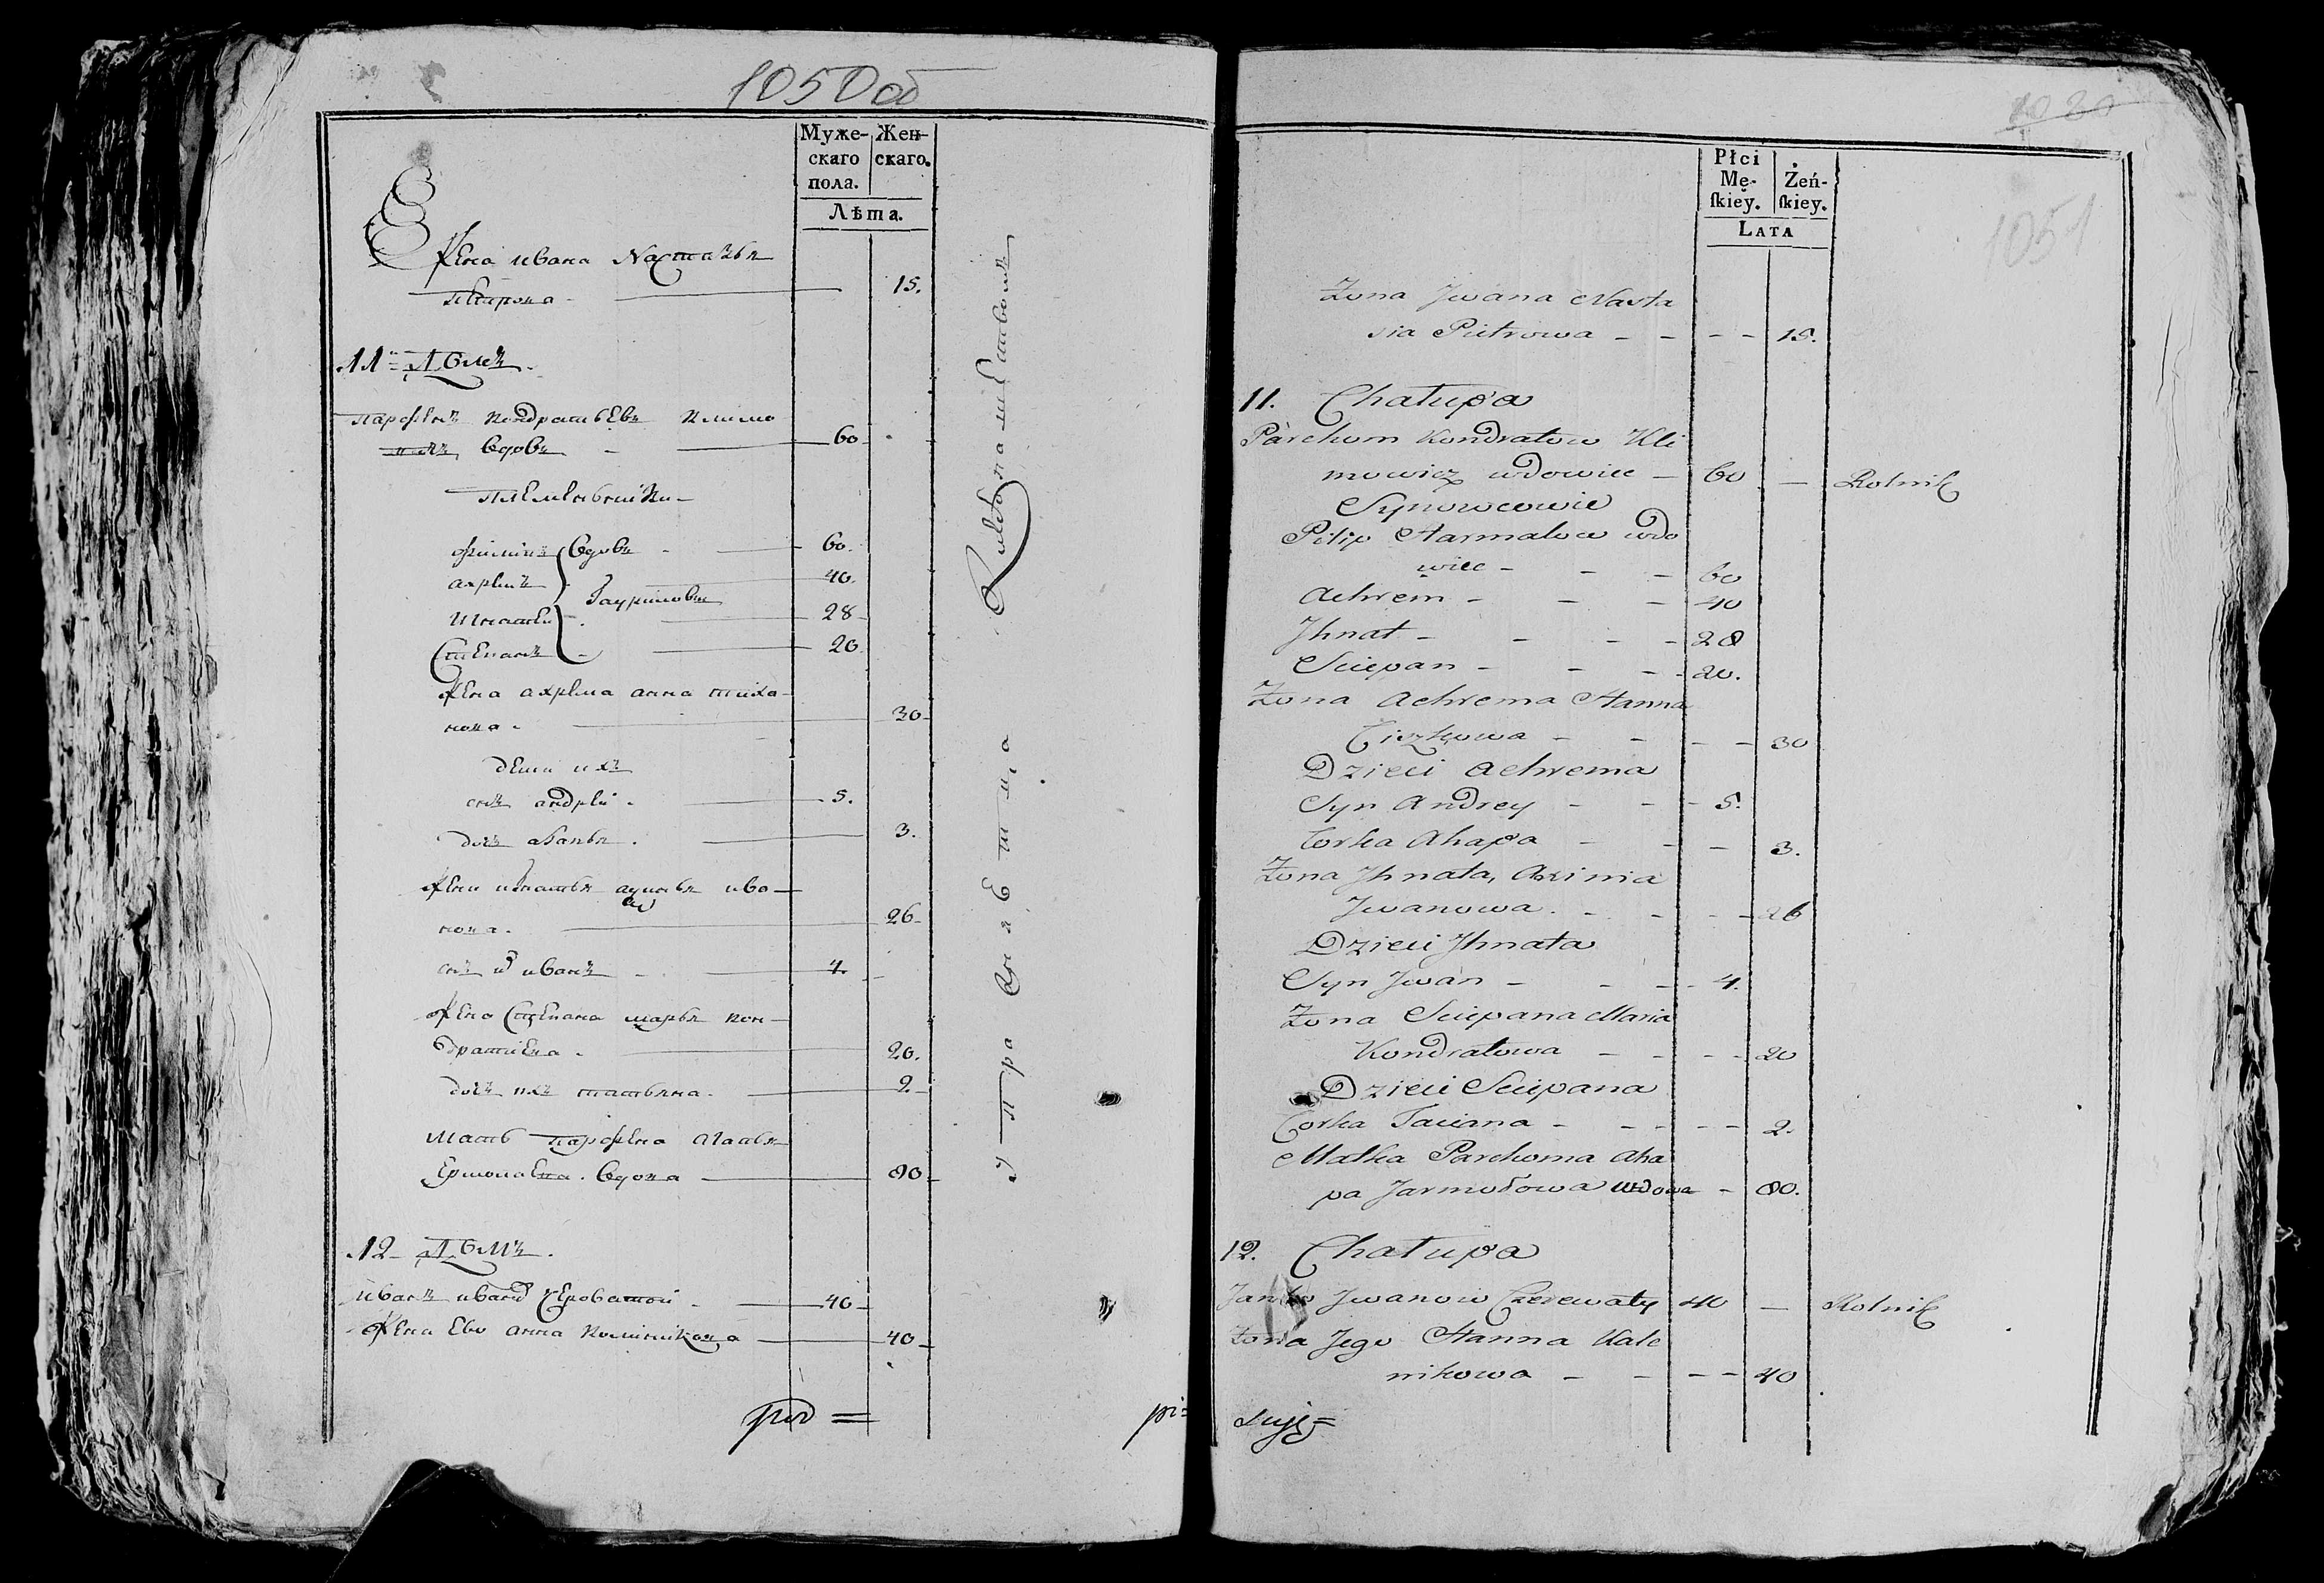 1050 об
Муже- Жен-
скаго скаго.
пола.
Лѣта.
жена ивана Настазья
петрова 15.
11й Домъ.
парфенъ кондратьевъ климо
вичъ вдовъ 60
племянники
филипъ вдовъ 60.
ахремъ 40.
Игнатей 28
Степанъ 20
жена ахрема анна тиха-
нова 30
дети ихъ
снъ андрей 5.
дочь агапья 3.
жена игнатья аѯинья ива-
нова 26
снъ иванъ 4.
жена Степана марья кон-
дратиева 20.
дочь ихъ татьяна 2
мать парфена агапья
Ермолаева вдова 80
12 Домъ.
иванъ ивановъ Череватой 40
жена Ево анна Калиникова 40
упражняется
1051
Płci
Mę- Żeń-
ſkiey. ſkiey.
LATA
Żona Jwana Nasta
sia Pietrowa 15.
11. Chałupa
Parchom Kondratow Kli
mowicz wdowiec 60 Rolnik
Synowcowie
Pilip Harmałow wdo
wiec 60
Achrem 40
Jhnat 28
Sciepan 20.
Żona Achrema Hanna
Ciszkowa 30
Dzieci Achrema
Syn Andrey 5.
Corka Ahapa 3.
Żona Jhnata, Axinia
Jwanowa. 26
Dzieci Jhnata
Syn Jwan 4.
Żona Sciepana Maria
Kondratowa 20
Dzieci Sciepana
Corka Taciana 2.
Matka Parchoma Aha
pa Jarmołowa wdowa 80.
12. Chałupa
Janko Jwanow Czerewaty 40 Rolnik
Żona Jego Hanna Kale
nikowa 40
pi=
suję=